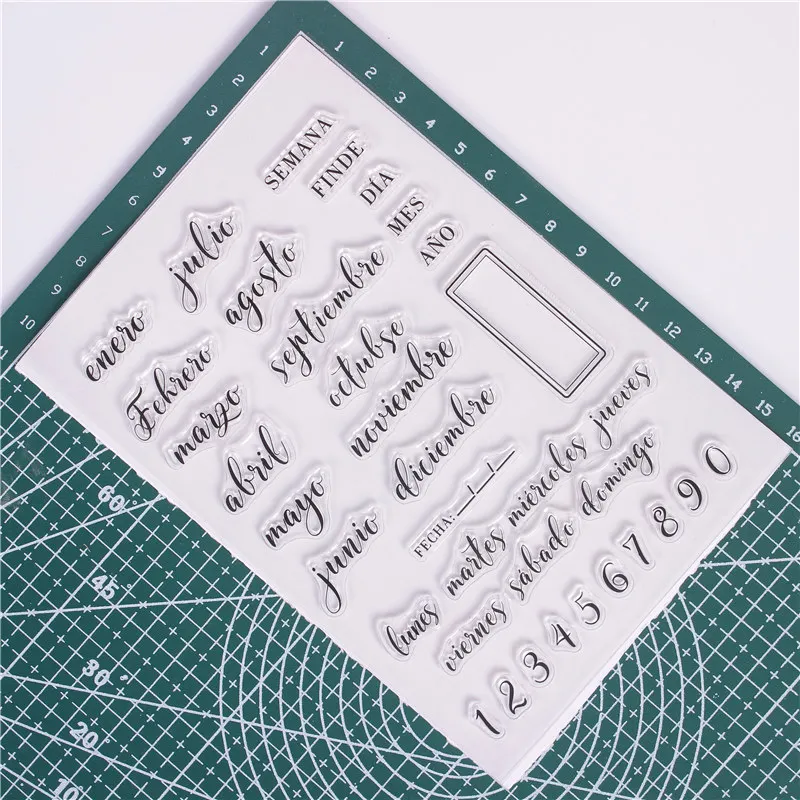 SEMANA
FINDE
DÍA
MES
AÑO
enero
Febrero
marzo
abril
mayo
junio
julio
agosto
septiembre
octubre
noviembre
diciembre
FECHA:
lunes
martes
miércoles
jueves
viernes
sábado
domingo
1 2 3 4 5 6 7 8 9 0
1 2 3 4 5 6 7 8 9 10 11 12 13 14 15 16
1 2 3 4 5 6 7 8 9 10 11
60°
45°
30°
20°
10°